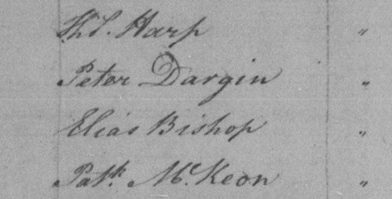 Thos. Harp "
Peter Dargin "
Elias Bishop "
Patk. McKeon "